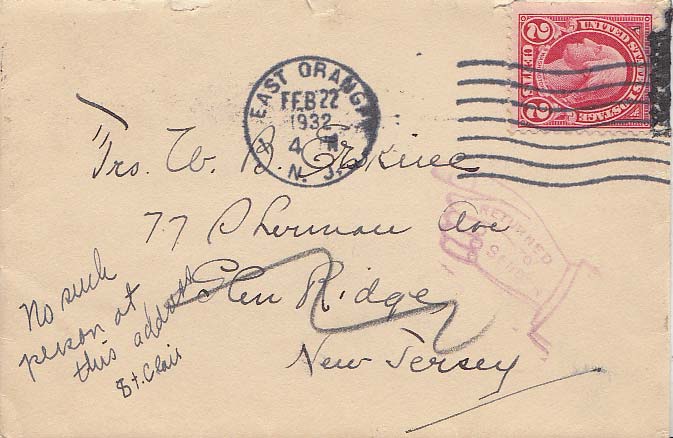 EAST ORANGE
FEB 22
1932
4 M
N. J.
UNITED STATES POSTAGE
2 CENTS 2
Mrs. W. B. Erskine
77 Sherman Ave
Glen Ridge
New Jersey
RETURNED
TO
SENDER
No such
person at
this address
St. Clair